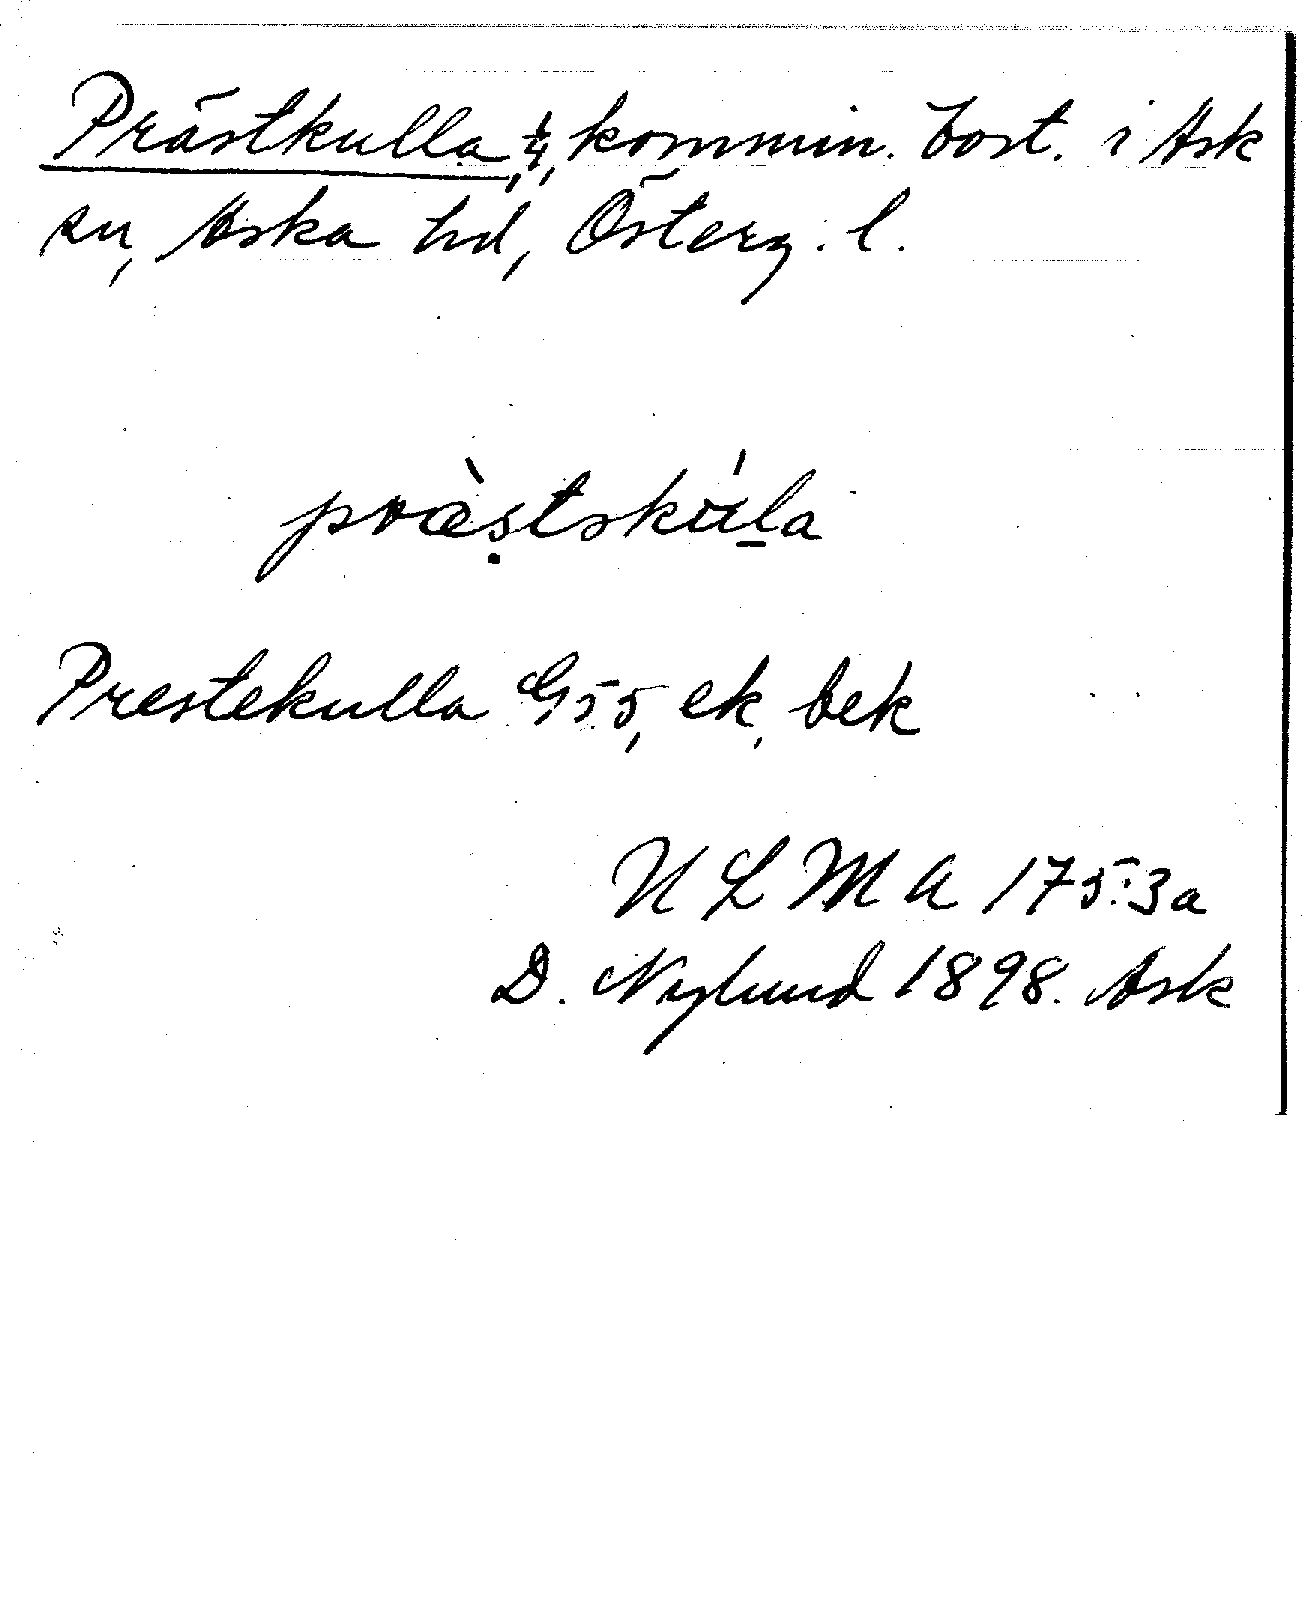 Prästkulla, ¼, kommin. bost. i Ask
sn, Aska hd, Österg. l.
præ̀stskúla
Prestekulla G55, ek, bek
ULMA 175:3a
D. Nylund 1898. Ask